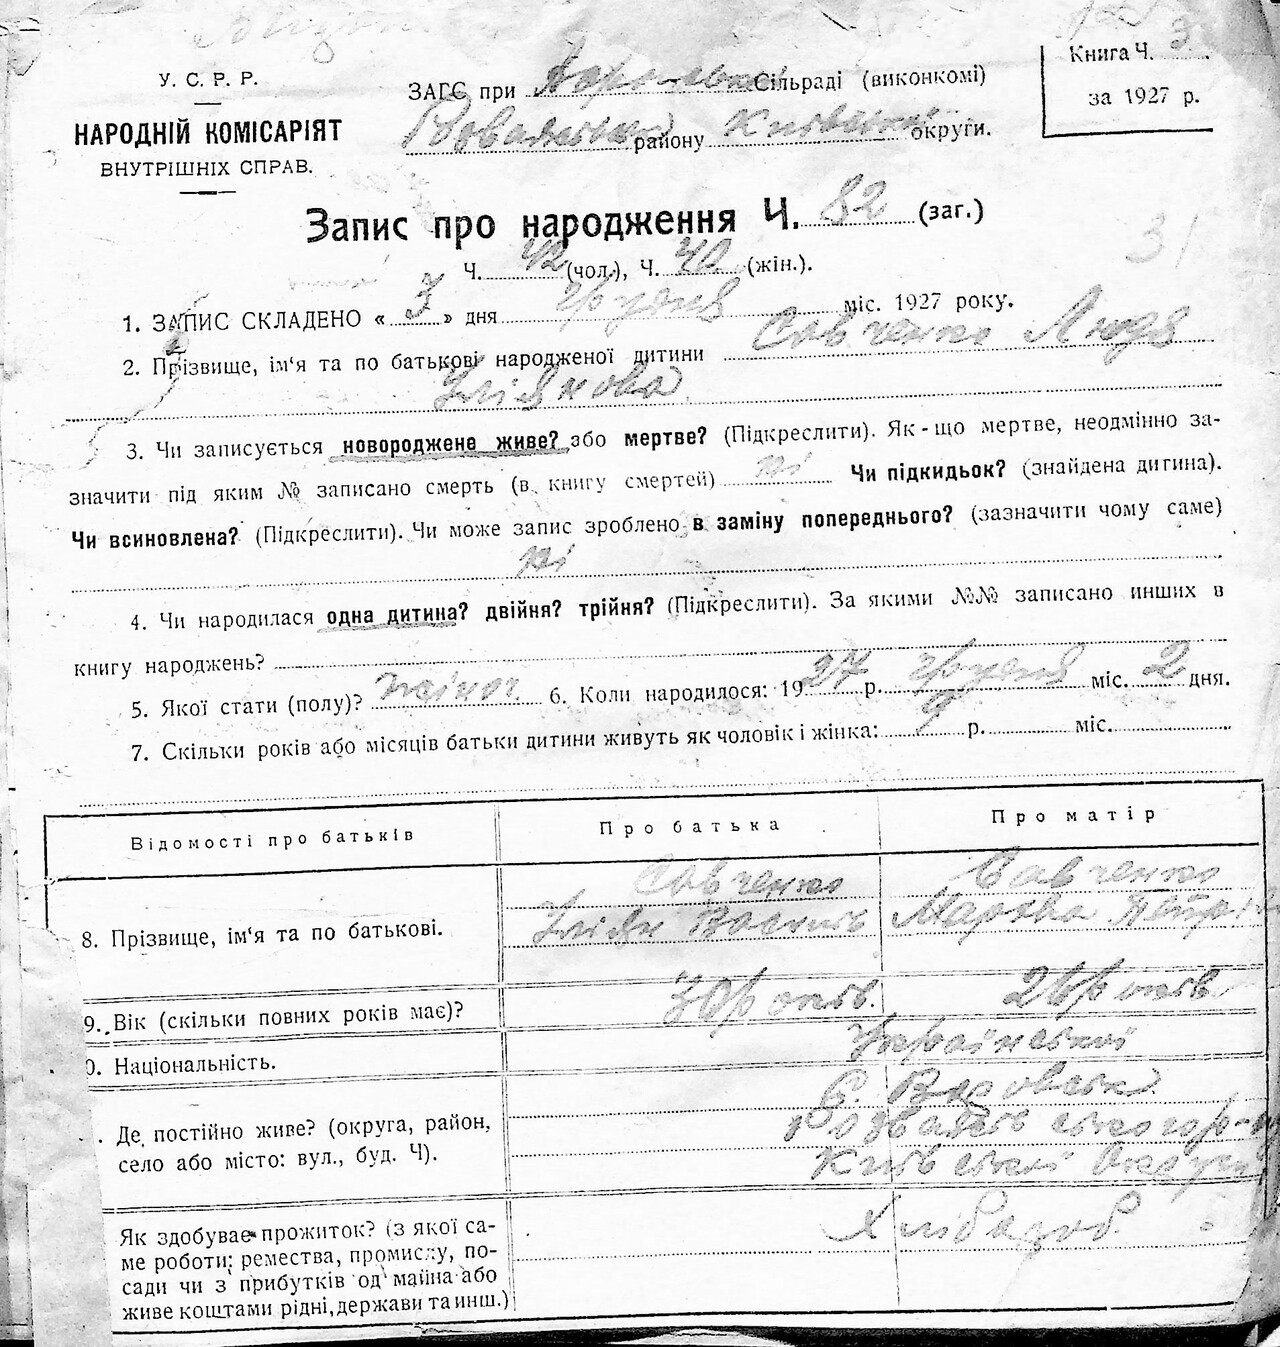 У. С. Р. Р.
НАРОДНІЙ КОМІСАРІЯТ
ВНУТРІШНІХ СПРАВ.
ЗАГС при Сільраді (виконкомі)
району Київської округи.
Книга Ч. 3
за 1927 р.
Запис про народження Ч. 82 (заг.)
31
Ч. 42 (чол.), Ч. 40 (жін.).
1. ЗАПИС СКЛАДЕНО « 3 » дня грудня міс. 1927 року.
2. Прізвище, ім'я та по батькові народженої дитини Савченко Людя
Уліянова
3. Чи записується новороджене живе? або мертве? (Підкреслити). Як-що мертве, неодмінно за-
значити під яким № записано смерть (в книгу смертей) ні Чи підкидьок? (знайдена дитина).
Чи всиновлена? (Підкреслити). Чи може запис зроблено в заміну попереднього? (зазначити чому саме)
ні
4. Чи народилася одна дитина? двійня? трійня? (Підкреслити). За якими №№ записано инших в
книгу народжень?
5. Якої стати (полу)? жіноч. 6. Коли народилося: 1927 р. грудня міс. 2 дня.
7. Скільки років або місяців батьки дитини живуть як чоловік і жінка: 9 р. міс.
Відомості про батьків Про батька Про матір
Савченко Савченко
8. Прізвище, ім'я та по батькові. Уліян Василь
9. Вік (скільки повних років має)? 30 років. 26 років.
0. Національність. Український
С.
. Де постійно живе? (округа, район, Розважівського
село або місто: вул., буд. Ч). Київської Округи
Як здобуває прожиток? (з якої са- Хлібороб.
ме роботи: ремества, промислу, по-
сади чи з прибутків од майна або
живе коштами рідні, держави та инш.)